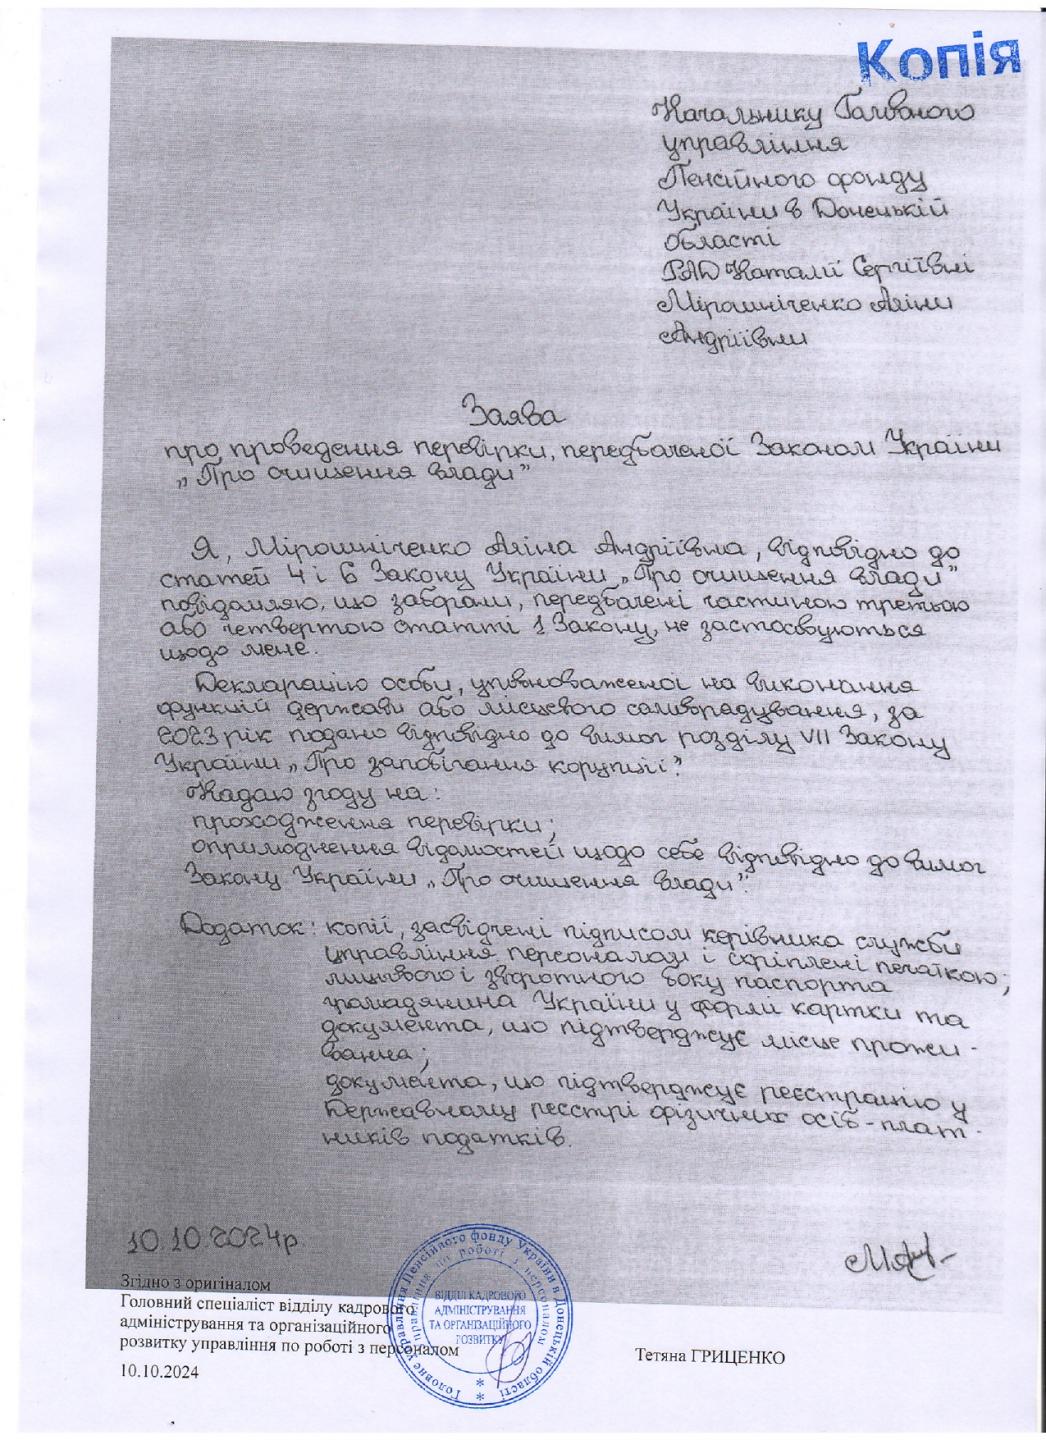 Копія
Начальнику Головного
управління
Пенсійного фонду
України в Донецькій
області
РАД Наталії Сергіївні
Мірошніченко Аліни
Андріївни
Заява
про проведення перевірки, передбаченої Законом України
„Про очищення влади”
Я, Мірошніченко Аліна Андріївна, відповідно до
статей 4 і 6 Закону України „Про очищення влади”
повідомляю, що заборони, передбачені частиною третьою
або четвертою статті 1 Закону, не застосовуються
щодо мене.
Декларацію особи, уповноваженої на виконання
функцій держави або місцевого самоврядування, за
2023 рік подано відповідно до вимог розділу VII Закону
України „Про запобігання корупції”.
Надаю згоду на:
проходження перевірки;
оприлюднення відомостей щодо себе відповідно до вимог
Закону України „Про очищення влади”.
Додаток: копії, засвідчені підписом керівника служби
управління персоналом і скріплені печаткою;
лицьового і зворотного боку паспорта
громадянина України у формі картки та
документа, що підтверджує місце прожи-
вання;
документа, що підтверджує реєстрацію у
Державному реєстрі фізичних осіб-плат-
ників податків.
10.10.2024р.
Згідно з оригіналом
Головний спеціаліст відділу кадрового
адміністрування та організаційного
розвитку управління по роботі з персоналом
Тетяна ГРИЦЕНКО
10.10.2024
Головне управління Пенсійного фонду України в Донецькій області
управління по роботі з персоналом
ВІДДІЛ КАДРОВОГО
АДМІНІСТРУВАННЯ
ТА ОРГАНІЗАЦІЙНОГО
РОЗВИТКУ